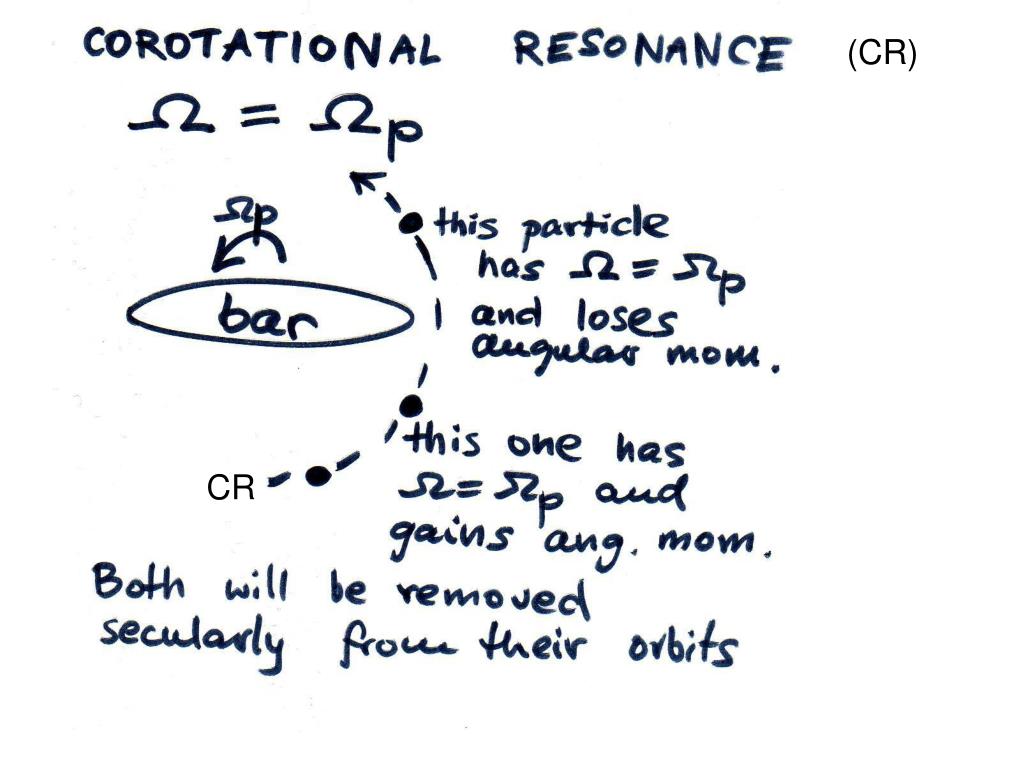 COROTATIONAL RESONANCE (CR)
Ω = Ωp
Ωp
bar
this particle
has Ω = Ωp
and loses
angular mom.
this one has
Ω = Ωp and
gains ang. mom.
CR
Both will be removed
secularly from their orbits